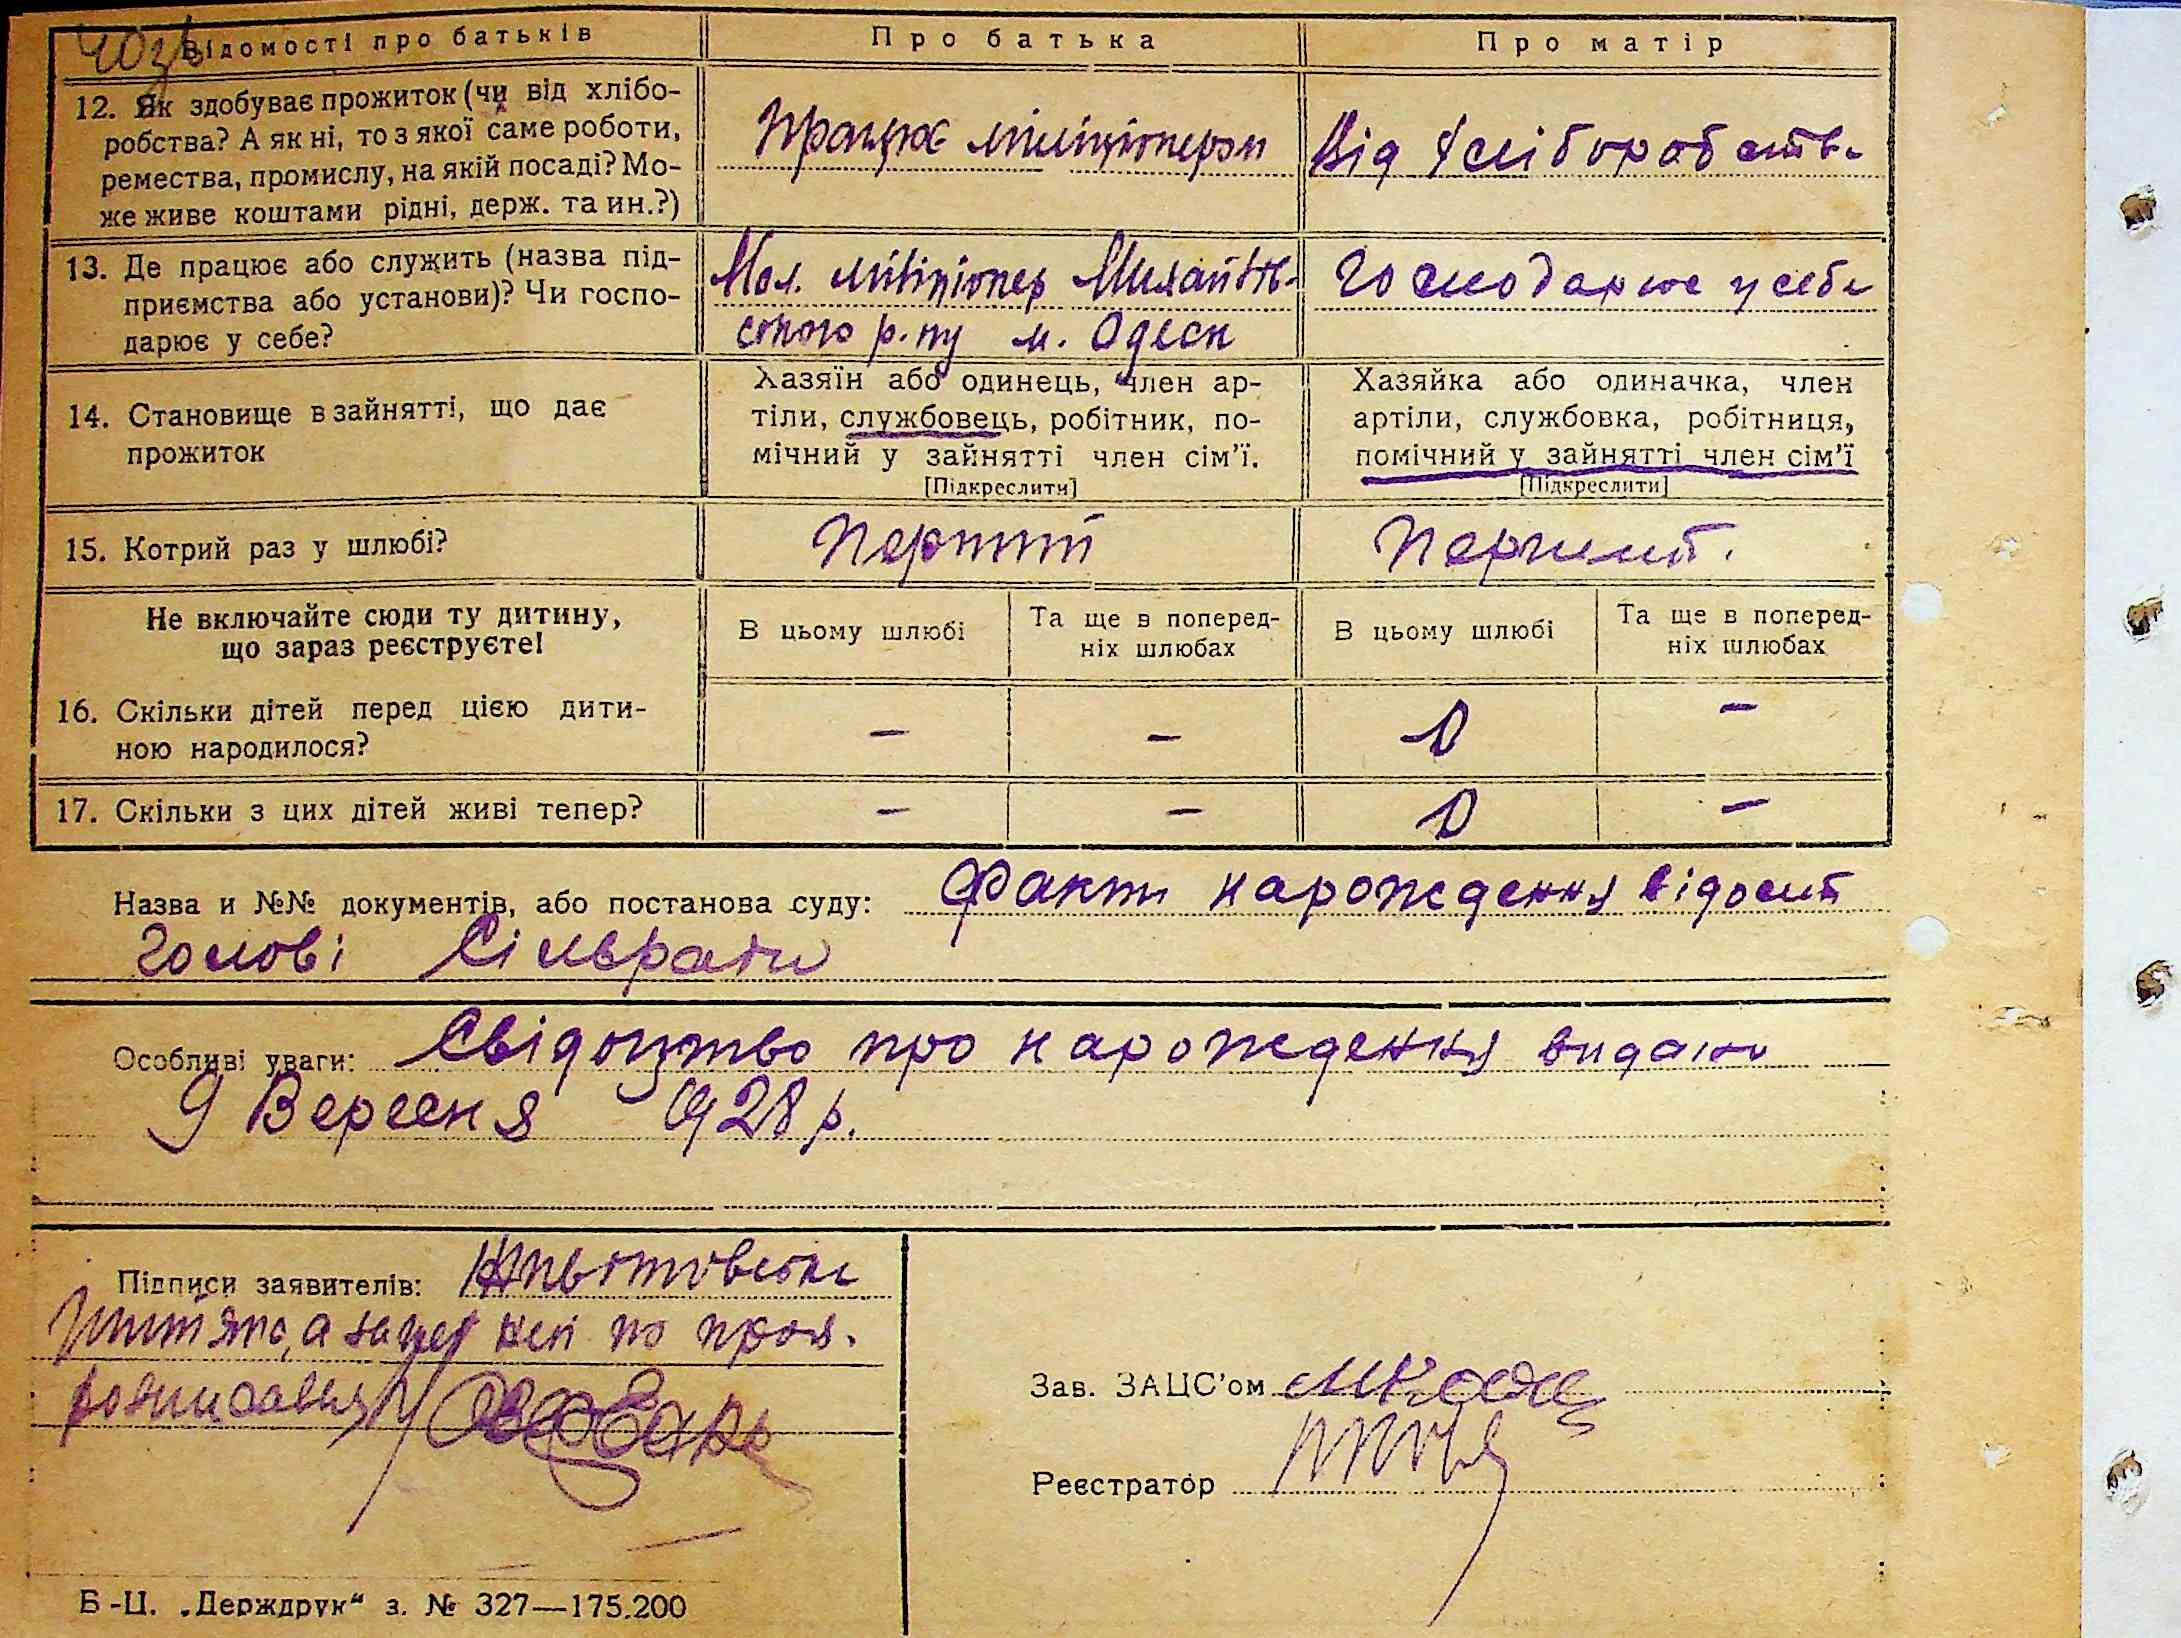 Відомості про батьків
Про батька
Про матір
12. Як здобуває прожиток (чи від хлібо-
робства? А як ні, то з якої саме роботи,
ремества, промислу, на якій посаді? Мо-
же живе коштами рідні, держ. та ин.?)
Працює міліціонером
Від Хліборобства
13. Де працює або служить (назва під-
приємства або установи)? Чи госпо-
дарює у себе?
Мол. міліціонер Михайлів-
ського р. м. Одеси
Господарює у себе
14. Становище в зайнятті, що дає
прожиток
Хазяїн або одинець, член ар-
тіли, службовець, робітник, по-
мічний у зайнятті член сім'ї.
[Підкреслити]
Хазяйка або одиначка, член
артіли, службовка, робітниця,
помічний у зайнятті член сім'ї
[Підкреслити]
15. Котрий раз у шлюбі?
Перший
Перший.
Не включайте сюди ту дитину,
що зараз реєструєте!
В цьому шлюбі
Та ще в поперед-
ніх шлюбах
В цьому шлюбі
Та ще в поперед-
ніх шлюбах
16. Скільки дітей перед цією дити-
ною народилося?
– – 0 –
17. Скільки з цих дітей живі тепер?
– – 0 –
Назва и №№ документів, або постанова суду: Факт нарождення відомий
Голові Сільради
Особливі уваги: Свідоцтво про нарождення видано
9 Вересня 1928 р.
Підписи заявителів:
а за неї по прох.
Зав. ЗАЦС'ом
Реєстратор
Б-Ц. „Держдрук“ з. № 327—175.200